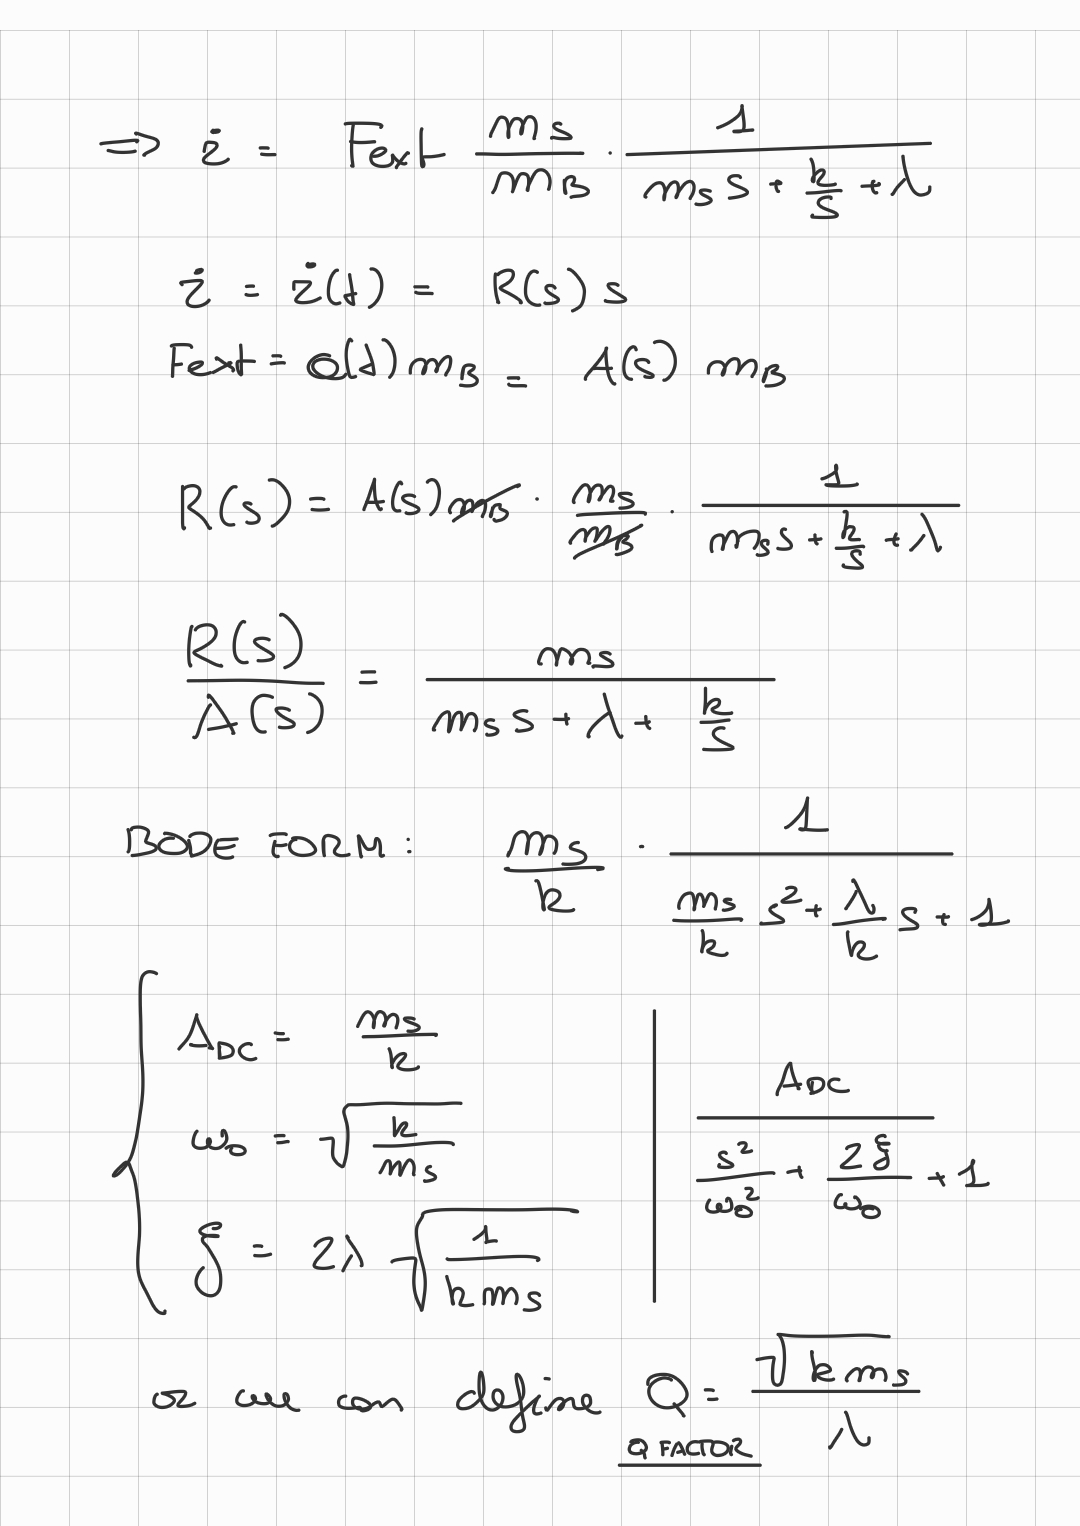 => ż = Fext ms/mB · 1/(ms s + k/s + λ)
ż = ż(t) = R(s) s
Fext = a(t) mB = A(s) mB
R(s) = A(s) mB · ms/mB · 1/(ms s + k/s + λ)
R(s)/A(s) = ms/(ms s + λ + k/s)
BODE FORM: ms/k · 1/(ms/k s² + λ/k s + 1)
ADC = ms/k
ω0 = √(k/ms)
ξ = 2λ √(1/(k ms))
ADC/(s²/ω0² + 2ξ/ω0 + 1)
or we can define Q = √(k ms)/λ
Q FACTOR